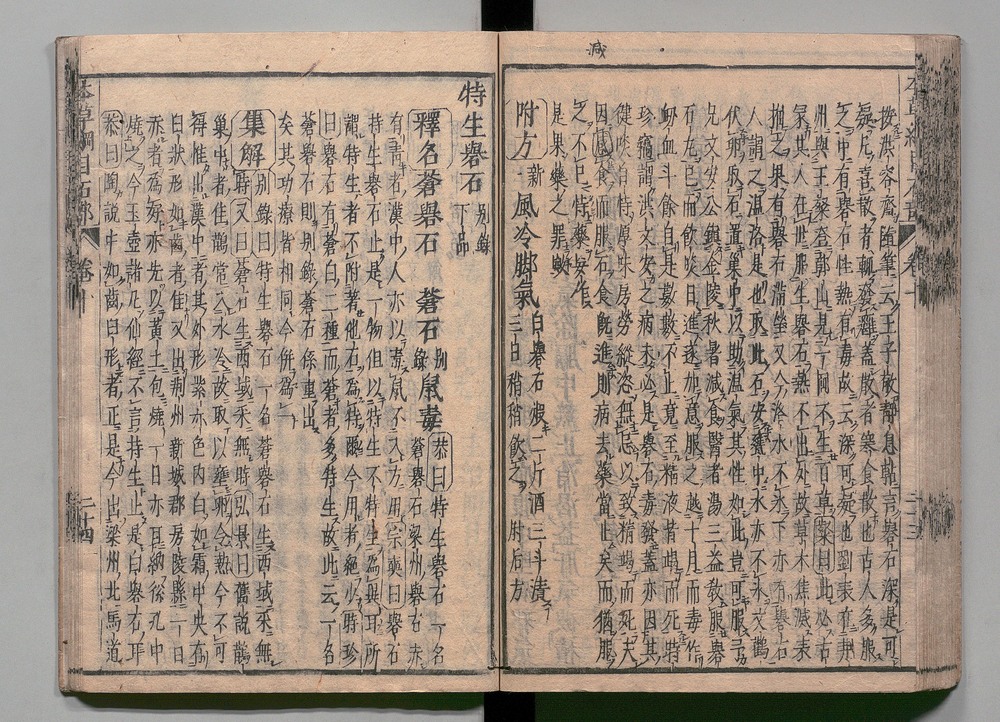 減
按洪容齋隨筆云王子敬靜息帖言礜石深是可
疑凡喜散者輒發癰蓋散者寒食散也古人多服
之中有礜石性熱有毒故云深可疑也劉表在荊
州與王粲登鄣山見一岡不生百草粲曰此必古
冢其人在世服生礜石熱不出外故草木焦滅表
掘之果有礜石滿塋又今洛水不冰下亦有礜石
人謂之溫洛是也取此石安甕中水亦不冰又鸛
伏卵取石置巢中以助溫氣其性如此豈可服予
兄文安公鎮金陵秋暑減食醫者湯三益敎服礜
石丸已而飲啖日進遂加意服之越十月而毒作
衂血斗餘自是數數不止竟至精液皆竭而死時
珍竊謂洪文安之病未必是礜石毒發蓋亦因其
健啖自恃厚味房勞縱恣無忌以致精竭而死夫
因減食而服石食旣進則病去藥當止矣而猶服
之不已恃藥妄作
是果藥之罪歟
附方 新一 風冷脚氣 白礜石煅二斤酒三斗漬三日稍稍飮之 肘后方
特生礜石 別錄下品
釋名蒼礜石 蒼石 別錄 鼠毒 恭曰特生礜石一名蒼礜石梁州礜石亦
有靑者漢中人亦以毒鼠不入方用宗奭曰礜石
特生礜石止是一物但以特生不特生爲異耳所
謂特生者不附著他石爲特爾今用者絕少時珍
曰礜石有蒼白二種而蒼者多特生故此云一名
蒼礜石則別錄蒼石係重出
矣其功療皆相同今併爲一
集解 別錄曰特生礜石一名蒼礜石生西域采無時又曰蒼石生西域采無時弘景曰舊說鸛
巢中者佳鸛常入水冷故取以壅卵令熱今不可
得惟出漢中者其外形紫赤色內白如霜中央有
臼狀形如齒者佳又出荊州新城郡房陵縣一日
赤者爲好亦先以黃土包燒一日亦耳納斧孔中
燒之合玉壺諸丸仙經不言特生止是白礜石耳
恭曰陶說中如齒臼形者正是今出梁州北馬道
本草綱目石部 卷十 二十四